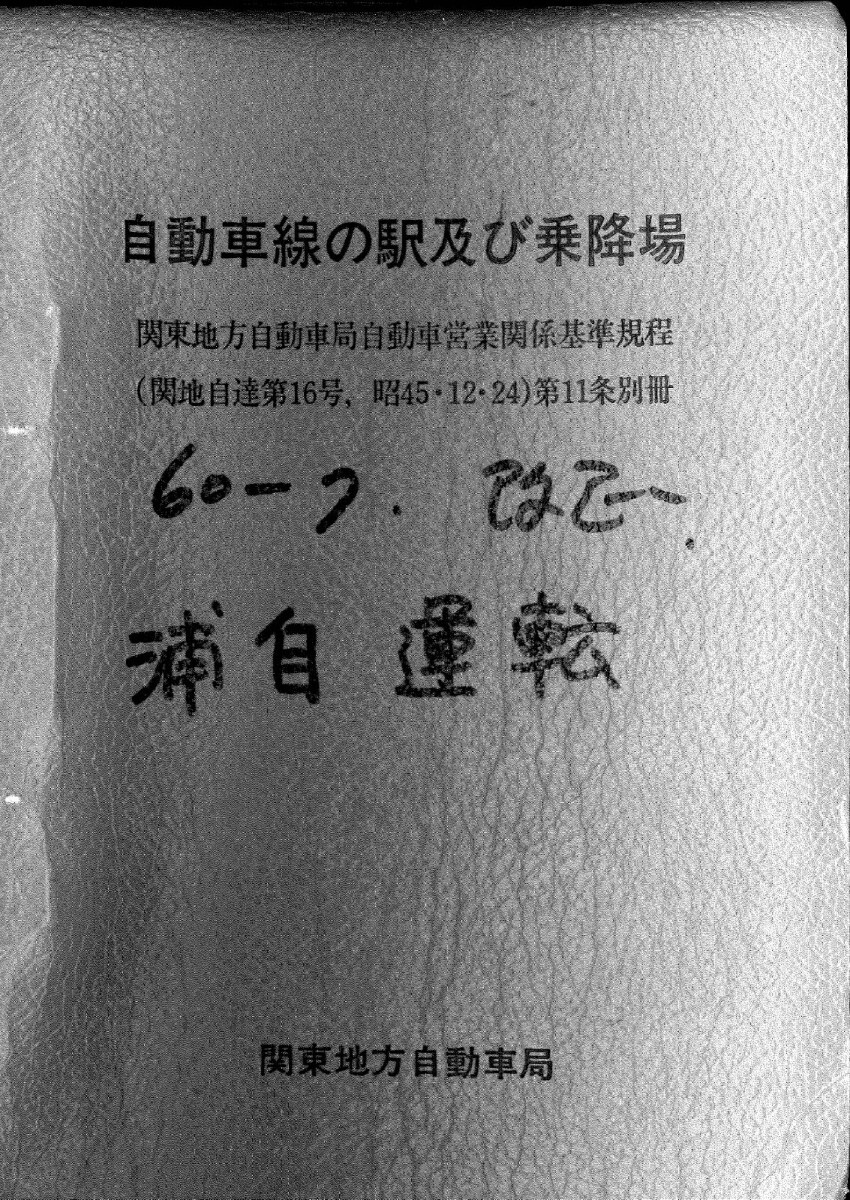 自動車線の駅及び乗降場
関東地方自動車局自動車営業関係基準規程
(関地自達第16号, 昭45・12・24)第11条別冊
60-7. 改正.
浦自 運転
関東地方自動車局